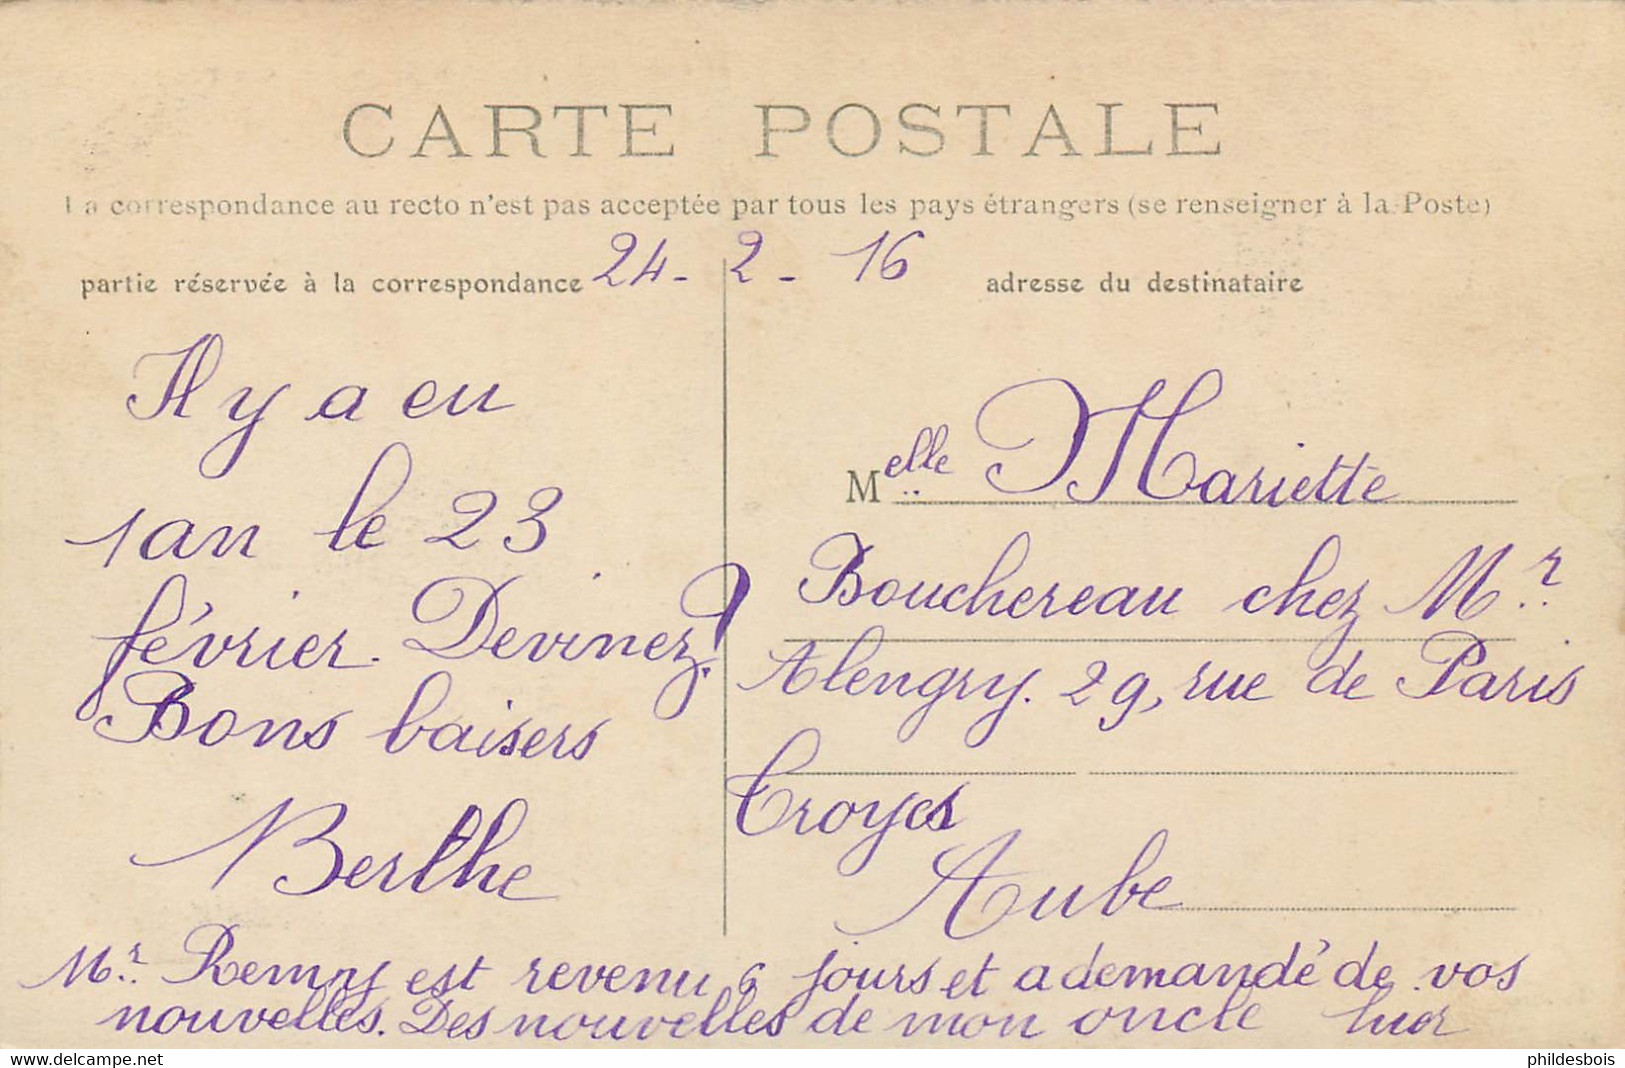 CARTE POSTALE
La correspondance au recto n'est pas acceptée par tous les pays étrangers (se renseigner à la Poste)
partie réservée à la correspondance 24-2-16 adresse du destinataire
Il y a eu
1 an le 23
février. Devinez?
Bons baisers
Berthe
Melle Mariette
Bouchereau chez Mr
Alengry. 29, rue de Paris
Troyes
Aube
Mr Remy est revenu 6 jours et a demandé de vos
nouvelles. Des nouvelles de mon oncle hier
www.delcampe.net
phildesbois